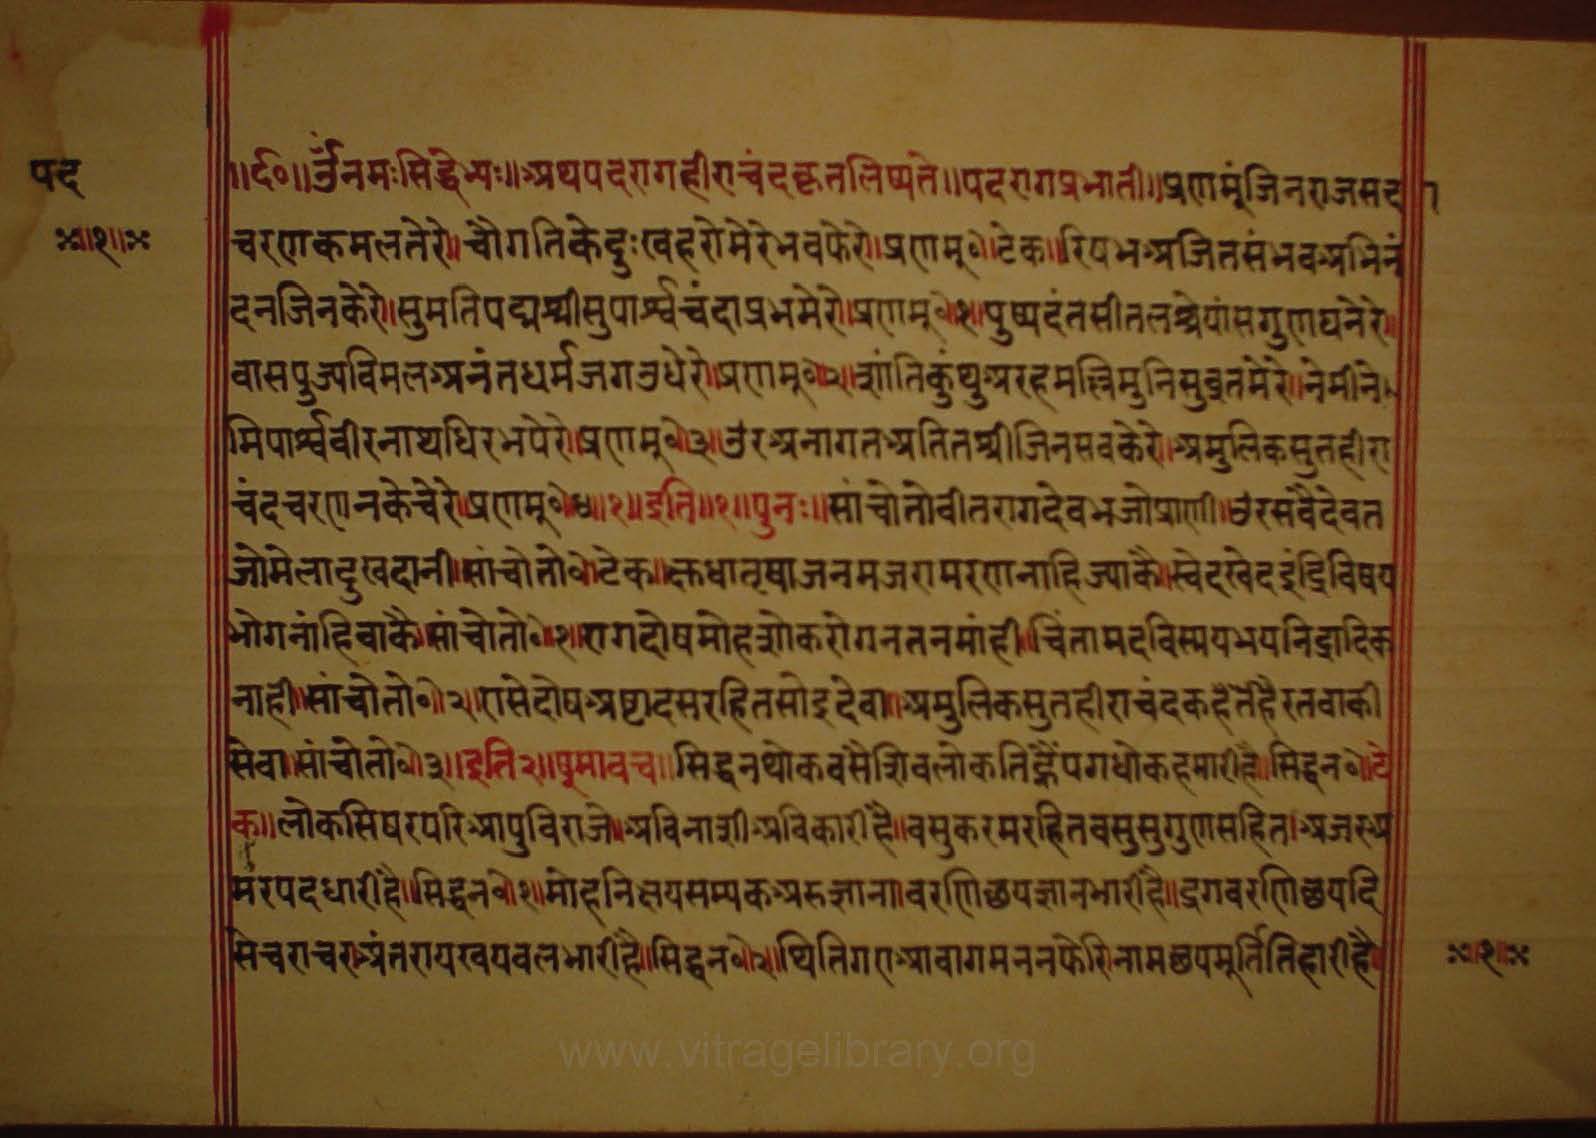 पद
॥१॥
॥र्द०॥ॐनमःसिद्धेभ्यः॥अथपदरागहीराचंदकृतलिष्यते॥पदरागप्रभाती॥प्रणमूंजिनराजसदा
चरणकमलतेरो॥चौगतिकेदुःखहरोमेरेभवफेरो॥प्रणमू०॥टेक॥रिषभअजितसंभवअभिनं
दनजिनकेरो॥सुमतिपद्मश्रीसुपार्श्वचंदाप्रभमेरो॥प्रणमू०॥१॥पुष्पदंतसीतलश्रेयांसगुणघनेरे॥
वासपुज्यविमलअनंतधर्मजगउधेरो॥प्रणमू०॥२॥शांतिकुंथुअरहमल्लिमुनिसुव्रतमेरे॥नेमीने
मिपार्श्ववीरनाथधिरभपेरो॥प्रणमू०॥३॥उरअनागतअतितश्रीजिनसवकेरो॥अमुलिकसुतहीरा
चंदचरणनकेचेरे॥प्रणमू०॥४॥१॥इति॥१॥पुनः॥सांचोतोवीतरागदेवभजोप्राणी॥उरसंवैदेवत
जोमेलादुखदानी॥सांचोतो०॥टेक॥क्तधातृषाजनमजरामरणनाहिज्याकै॥स्वेदखेदइंद्रिविषय
भोगनांहिवाकै॥सांचोतो०॥१॥रागदोषमोहशोकरोगनतनमांही॥चिंतामदविस्मयभयनिद्रादिक
नाही॥सांचोतो०॥२॥रासेदोषअष्टादसरहितसोइदेवा॥अमुलिकसुतहीराचंदकहैतेहैरतवाकी
सेवा॥सांचोतो०॥३॥इति२॥षूमावच॥सिद्धनथोकवसैशिवलोकतिन्हैंपगधोकहमारीहै॥सिद्धन०॥टे
क॥लोकसिषरपरिआपुविराजे॥अविनाशीअविकारीहै॥वसुकरमरहितवसुसुगुणसहित॥अजरुअ
मरपदधारीहै॥सिद्धन०॥१॥मोहनिक्षयसम्यकअरुज्ञाना॥वरणिछपज्ञानभारीहै॥द्रगवरणिछयदि
सेचराचरअंतरायखयवलभारीहै॥सिद्धन०॥२॥थितिगएआवागमननफेरिनामछपमूर्तितिहारीहै॥
॥१॥
www.vitragelibrary.org